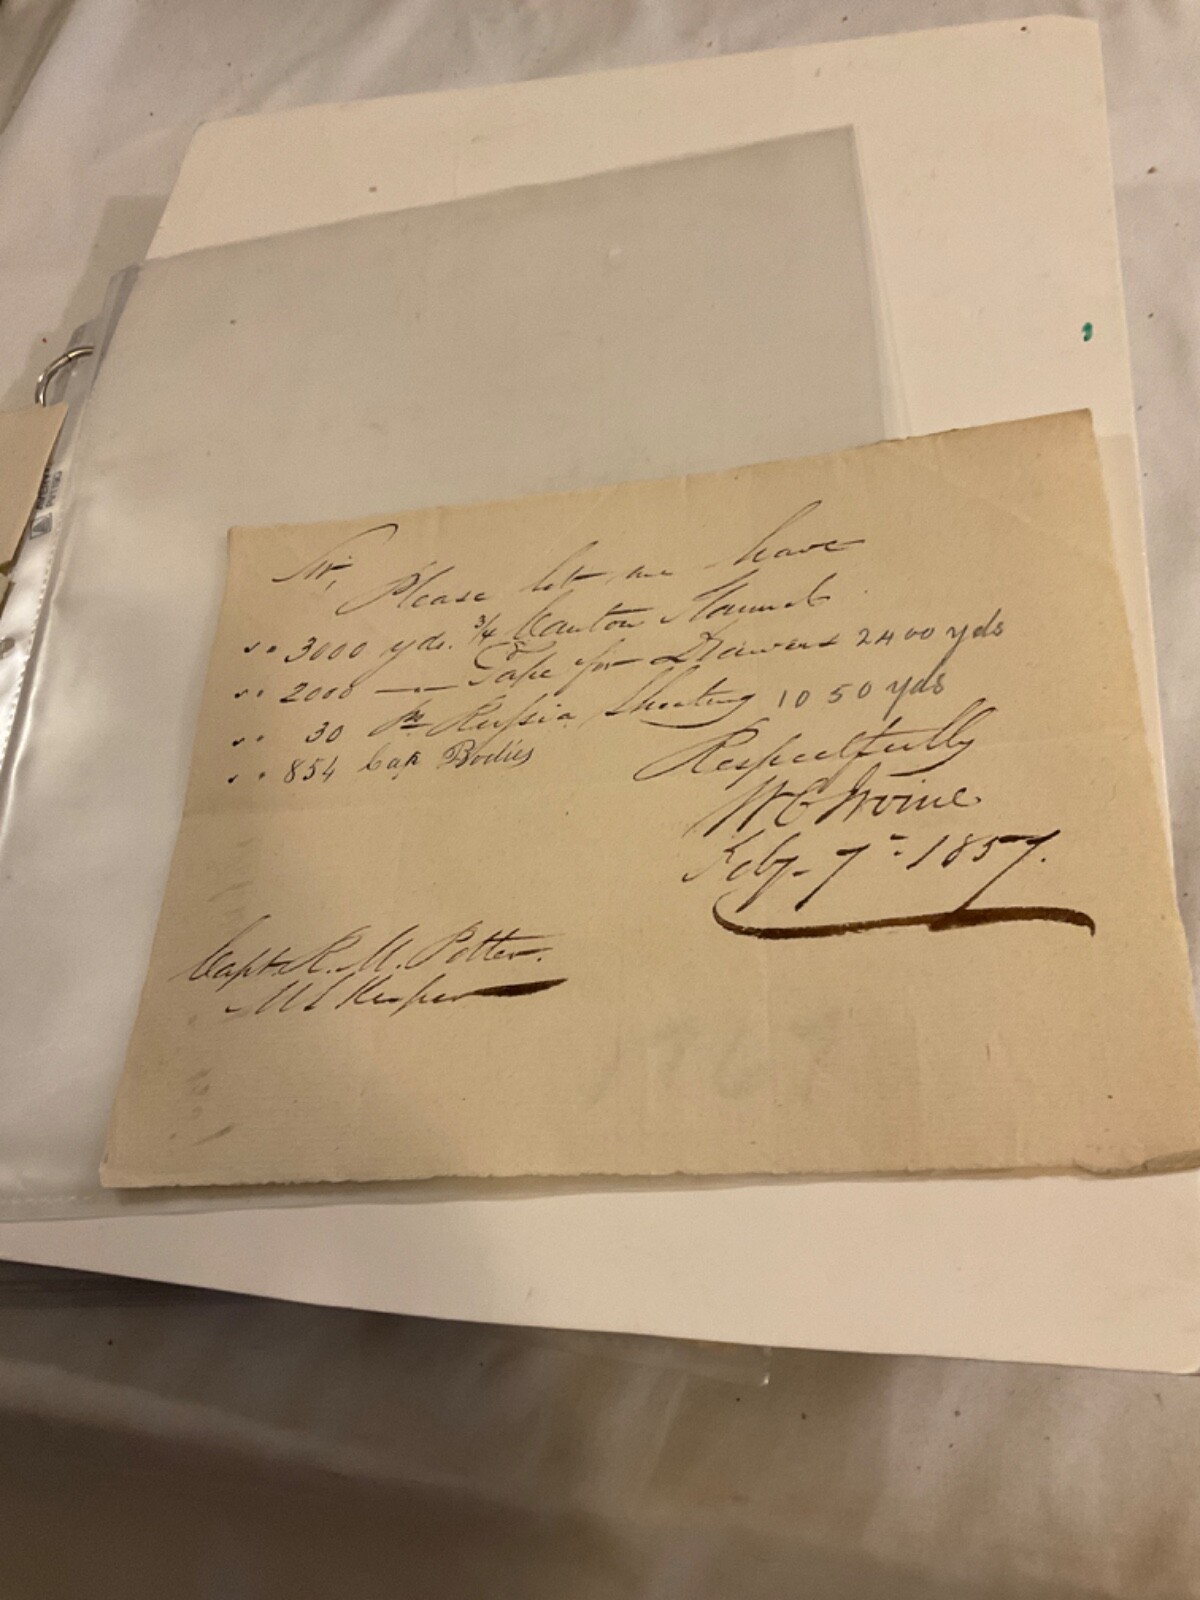 Sir,
Please let me have
" " 3000 yds. 3/4 Canton Flannel
" " 2000 — Tape for Drawers 2400 yds
" " 30 Ps Russia Sheeting 1050 yds
" " 854 Cap Bodies
Respectfully
W C Irvine
Feby. 7th 1857.
Capt. R. M. Potter.
M S Keeper
AVERY